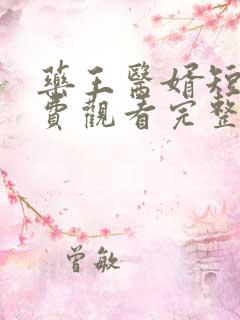 藥王醫婿短
費觀看完整
曾敏